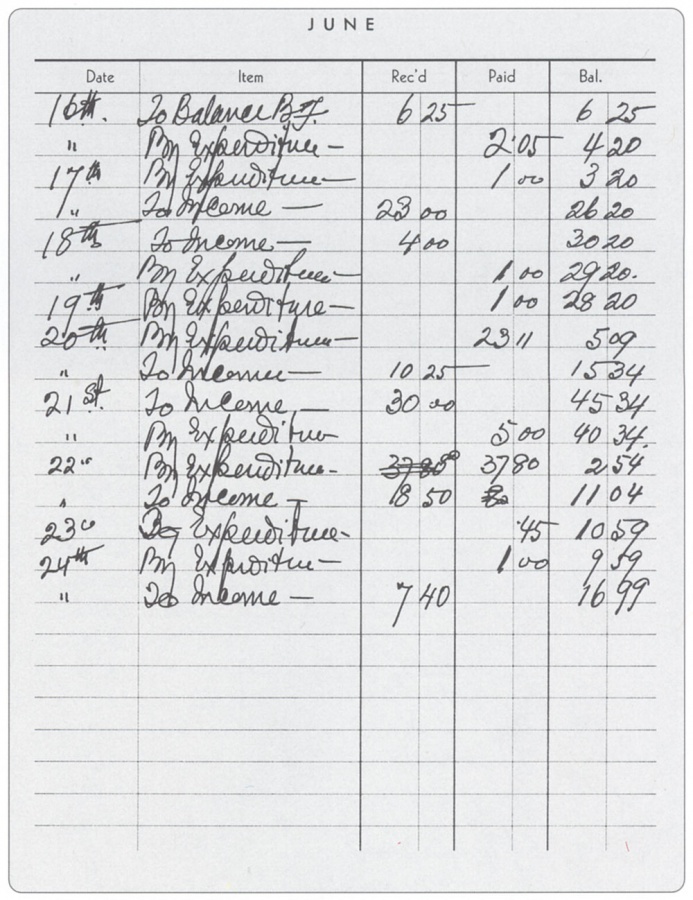 JUNE
Date Item Rec'd Paid Bal.
16th. To Balance B.F. 6 25 6 25
" By Expenditure — 2.05 4 20
17th By Expenditure — 1 00 3 20
" To Income — 23 00 26 20
18th To Income — 4 00 30 20
" By Expenditure — 1 00 29 20.
19th By Expenditure — 1 00 28 20
20th By Expenditure — 23 11 5 09
" To Income — 10 25 15 34
21st. To Income — 30 00 45 34
" By Expenditure 5 00 40 34.
22" By Expenditure — 37 80 2 54
" To Income — 18 50 11 04
23" By Expenditure — 45 10 59
24th By Expenditure — 1 00 9 59
" To Income — 7 40 16 99